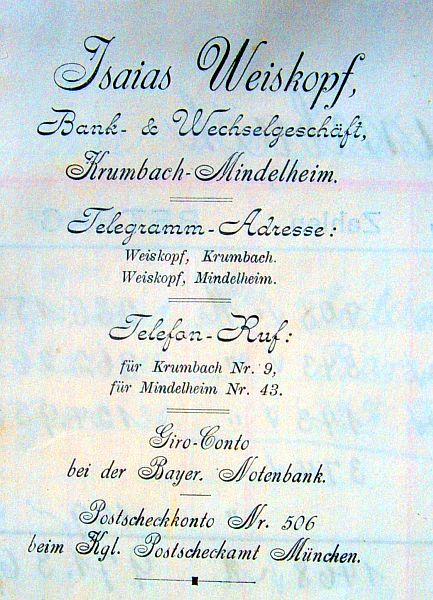 Isaias Weiskopf,
Bank- & Wechselgeschäft,
Krumbach-Mindelheim.
Telegramm-Adresse:
Weiskopf, Krumbach.
Weiskopf, Mindelheim.
Telefon-Ruf:
für Krumbach Nr. 9,
für Mindelheim Nr. 43.
Giro-Conto
bei der Bayer. Notenbank.
Postscheckkonto Nr. 506
beim Kgl. Postscheckamt München.